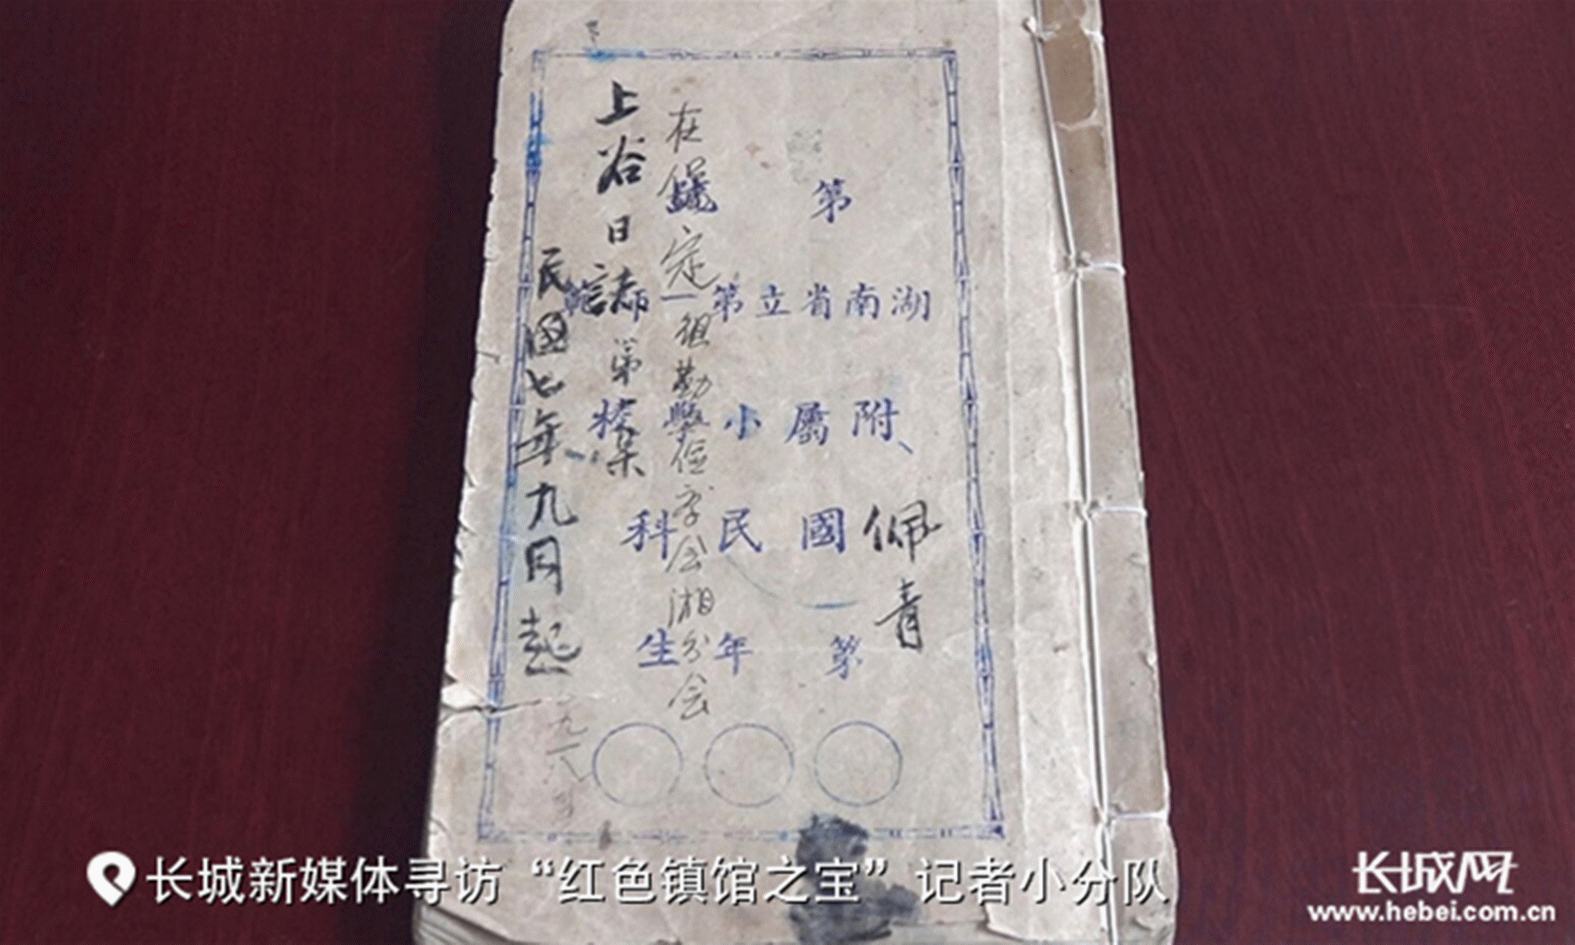 第
湖南省立第一師範
附屬小學校
國民科
第 年 生
佩青
在保定组勤 俭学会湘分会
上谷日誌
第 集
民国七年九月起
一九一八
长城新媒体寻访“红色镇馆之宝”记者小分队
长城网
www.hebei.com.cn